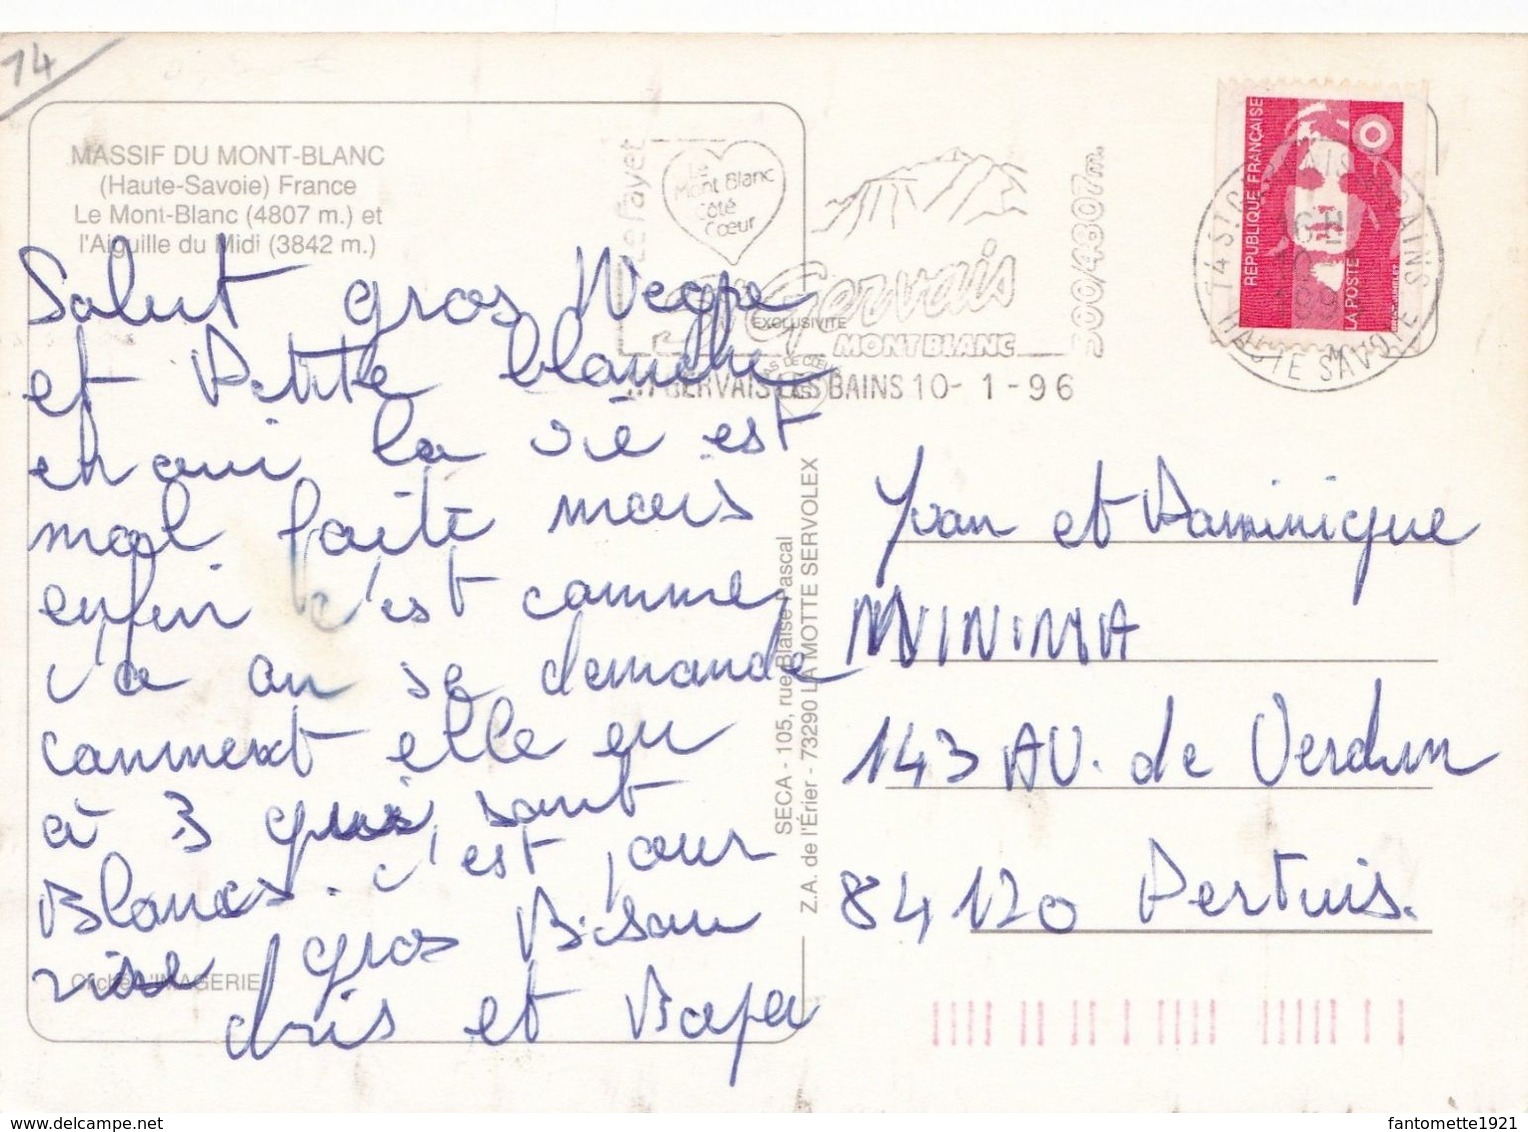 14
MASSIF DU MONT-BLANC
(Haute-Savoie) France
Le Mont-Blanc (4807 m.) et
l'Aiguille du Midi (3842 m.)
Salut gros Negre
et Petite blanche
eh oui la vie est
mal faite mais
enfin c'est comme
ça on se demande
comment elle en
a 3 qui sont
Blancs. c'est pour
rire gros Bisou
et Papa
Cliché L'IMAGERIE
EXCLUSIVITE
SECA - 105, rue Blaise Pascal
Z.A. de l'Érier - 73290 LA MOTTE SERVOLEX
Le Fayet
Le
Mont Blanc
Côté
Cœur
St Gervais
MONT BLANC
900/4807 m.
GERVAIS LES BAINS 10-1-96
RÉPUBLIQUE FRANÇAISE
LA POSTE
74 ST GERVAIS LES BAINS
16H
10
HAUTE SAVOIE
Yvan et Dominique
MINIMA
143 AV. de Verdun
84120 Pertuis.
fantomette1921